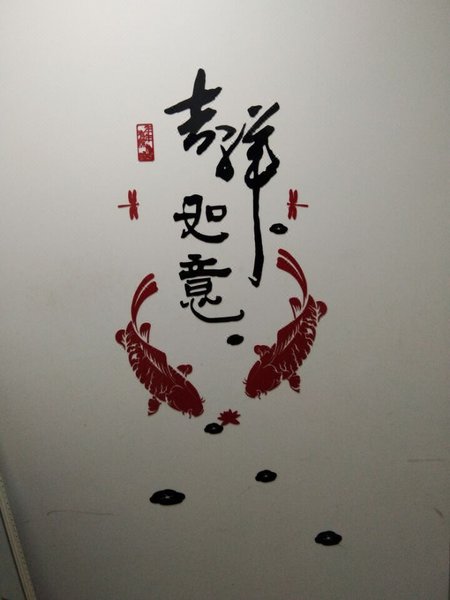 吉祥
如
意